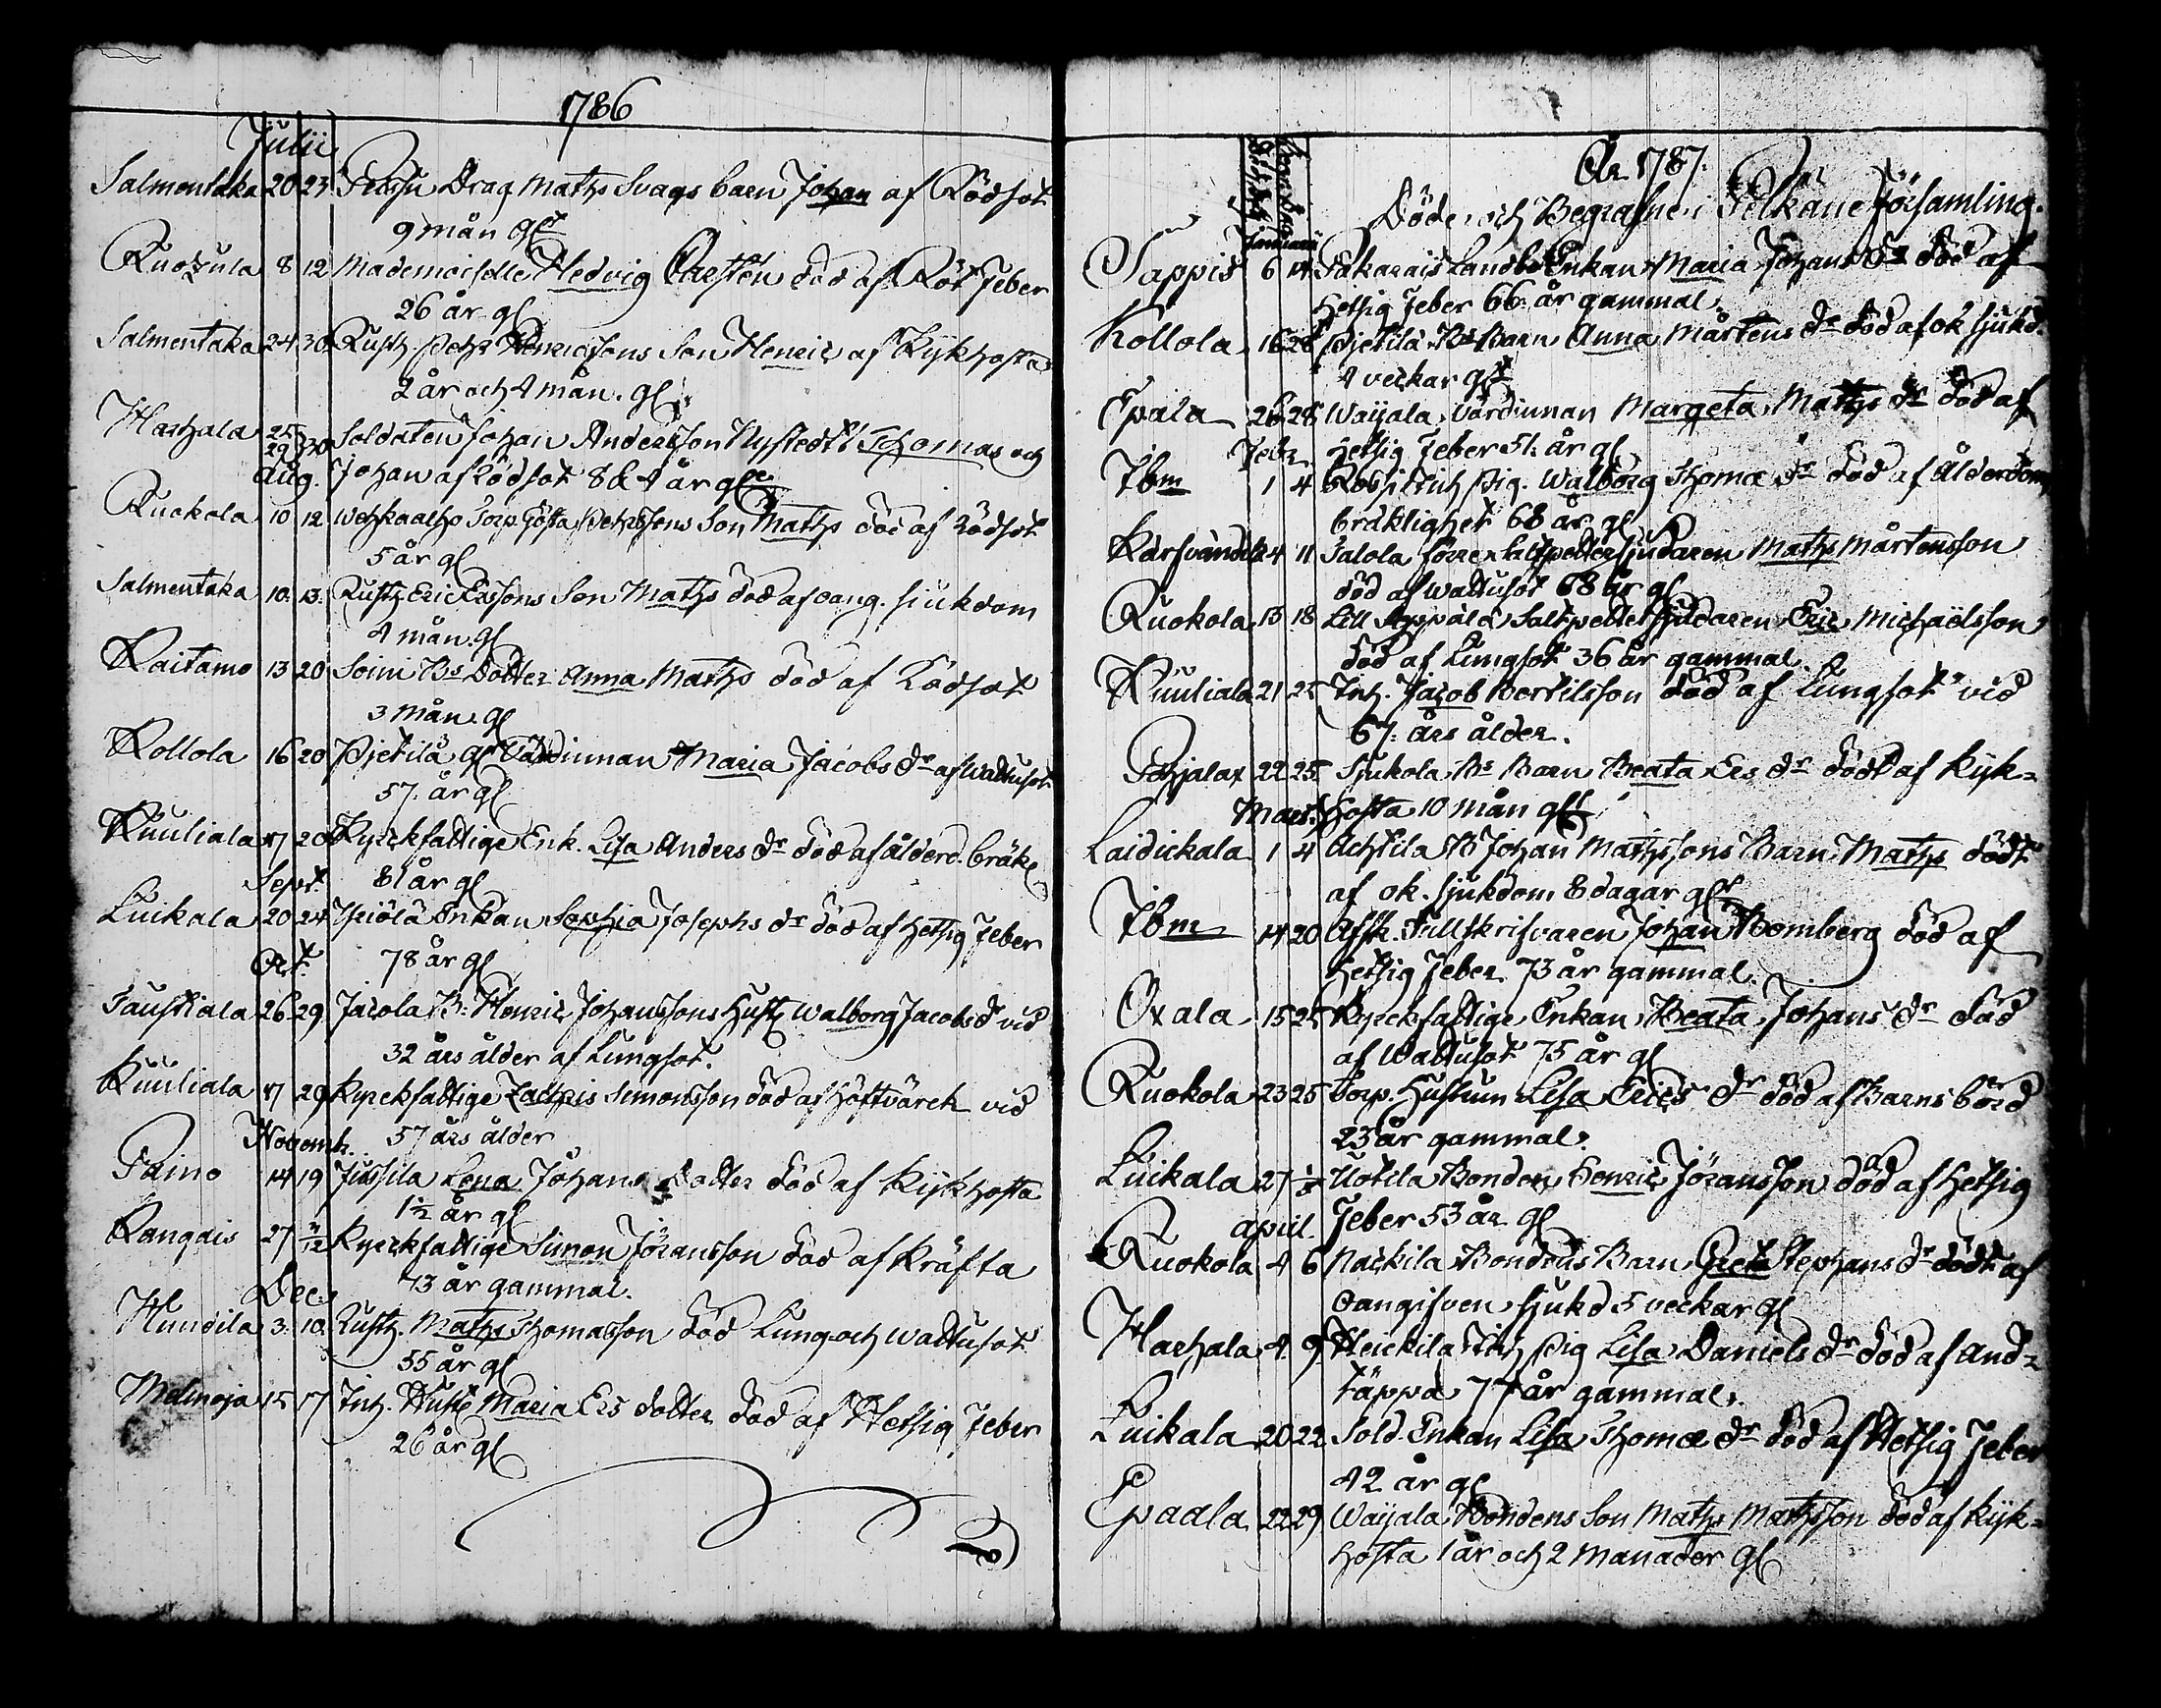 1786
Julii
Salmentaka 20 23 Perssu Drag Maths Svags barn Johan af Rödsot
9 mån glt
Ruokula 8 12 Mademoiselle Hedvig Carsten död af Röt Feber
26 år gl
Salmentaka 24 30 Rusth. Petr Henricssons Son Henric af Kijkhosta
2 år och 4 mån. gl
Harhala 25 29 30 Soldaten Johan Andersson Nystedts Thomas och
Aug. Johan af Rödsot 8 & 4 år gle
Ruokola 10 12 Torp. Gösta Petrssons Son Maths död af Rödsot
5 år gl
Salmentaka 10. 13. Rusth Eric Erssons Son Maths död af oang. siukdom
4 mån. gl
Raitamo 13 20 Soini Bs Dotter Anna Maths död af Rödsot
3 mån. gl
Kollola 16 20 Pietilä gl Värdinnan Maria Jacobs dr af Wattusot
57. år gl
Kuuliala 17 20 Kyrckfattige Enk. Lisa Anders dr död af ålderd. bräkl
Sept. 81 år gl
Luikala 20 24 Yriölä Enkan Sophia Josephs dr död af Hetsig Feber
Oct. 78 år gl
Taustiala 26 29 Jacola B. Henric Johanssons Hust. Walborg Jacobs dr vid
32 års ålder af Lungsot.
Kuuliala 17 29 Kyrckfattige Zachris Simonsson död af Höftvärck vid
Novemb. 57 års ålder
Paino 14 19 Jussila Lena Johans Dotter död af Kijkhosta
1½ år gl
Kangais 27 3/12 Kyrckfattige Simon Jöransson död af Kräfta
Dec. 73 år gammal.
Hundila 3. 10. Rusth. Maths Thomasson död Lung och Wattusot
55 år gl
Melmoja 15 17 Inh. Hust. Maria Ers dotter död af Hetsig Feber
26 år gl
År 1787.
Döde och Begrafne i Pelkäne Församling.
Januarii
Sappis 6 14 Landb. Enkan Maria Johans dr död af
Hetsig Feber 66. år gammal.
Kollola 16 28 Pietilä Bs Barn Anna Mårtens dr död af ok sjukd.
4 veckor glt
Epala 26 28 Waijala Värdinnan Margeta Maths dr död af
Febr. Hetsig Feber 51. år gl
Ibm 1 4 Pig. Walborg Thomæ dr död af Ålderdoms
bräklighet 68 år gl
4 11 Salola förre Saltpettersjudaren Maths Mårtensson
död af Wattusot 68 år gl
Ruokola 13 18 Lill Seppälä Saltpettersjudaren Eric Michaëlsson
död af Lungsot 36 år gammal.
Kuuliala 21 25 Inh. Jacob Bertilsson död af Lungsot vid
67. års ålder.
Pohjalax 22 25 Sjukola Bs Barn Beata Ers dr dödt af Kijk-
Mart. hosta 10 mån glt
Laidickala 1 4 Achtila B Johan Mathssons Barn Maths dödt
af ok. sjukdom 8 dagar glt
Ibm 14 20 Afsk. Fältskrifvaren Johan Bomberg död af
Hetsig Feber 73 år gammal.
Oxala 15 25 Kyrckfattige Enkan Beata Johans dr död
af Wattusot 75 år gl
Ruokola 23 25 Torp. Hustrun Lisa Erics dr död af Barnsbörd
23 år gammal.
Luikala 27 1/8 Uotila Bonden Henric Jöransson död af Hetsig
April. Feber 53 år gl
Ruokola 4 6 Nackila Bondens Barn Greta Stephans dr dödt af
oangifven sjukd 5 veckor gl
Harhala 4. 9. Heickila Inh Pig Lisa Daniels dr död af And-
täppa 77 år gammal.
Luikala 20 22 Sold. Enkan Lisa Thomæ dr död af Hetsig Feber
42 år gl
Epaala 22 29 Waijala Bondens Son Maths Mathsson död af Kijk-
hosta 1 år och 2 Månader gl